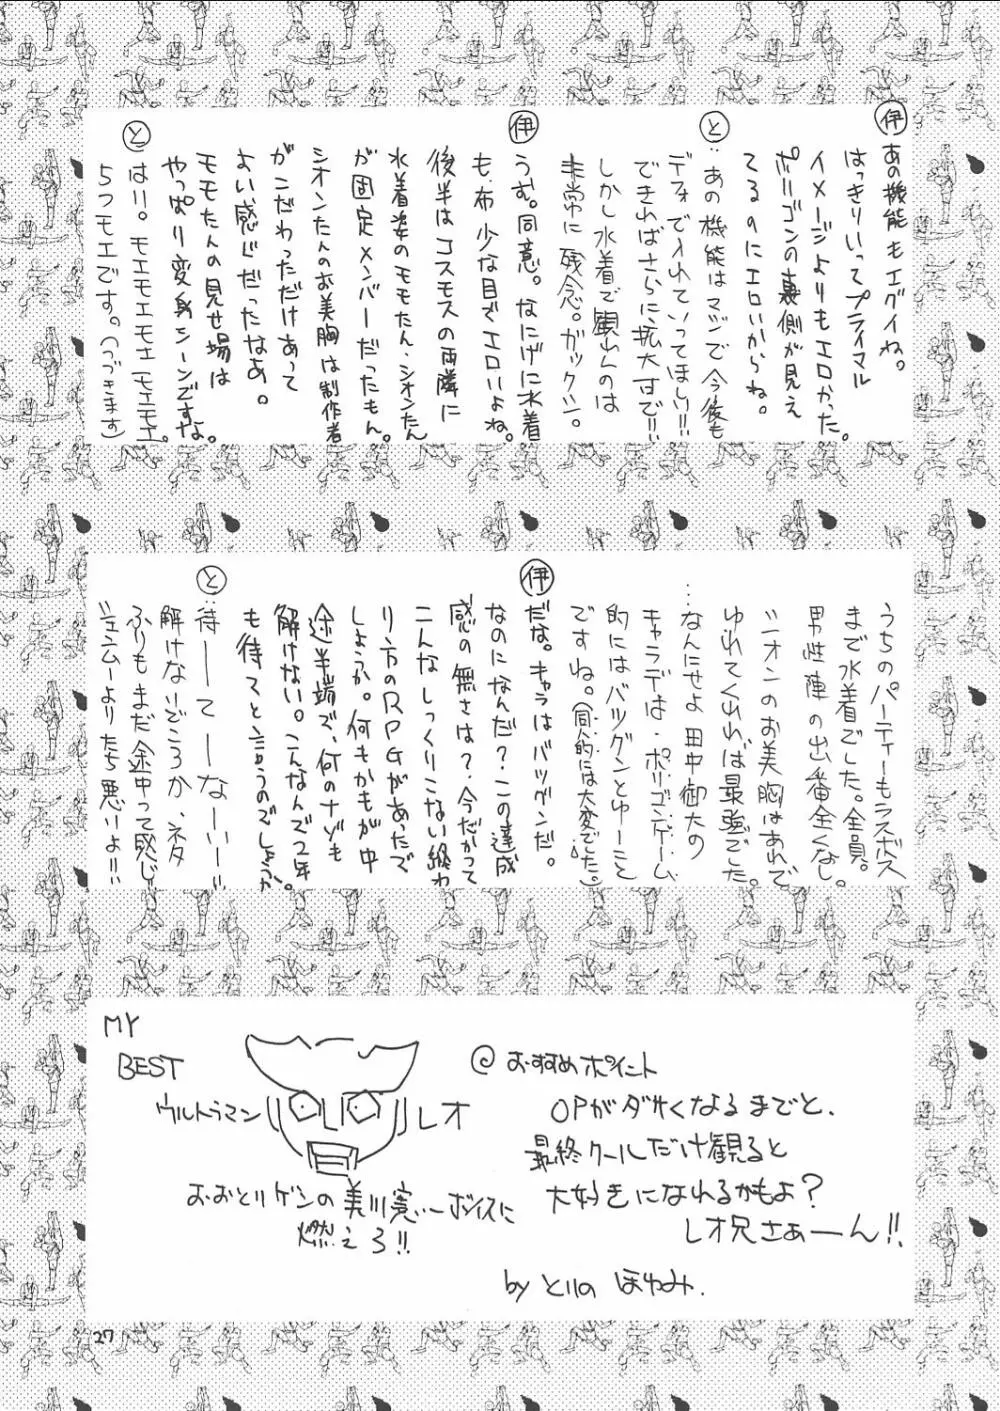 伊
あの機能もエグイね。
はっきりいってプライマル
イメージよりもエロかった。
ポリゴンの裏側が見え
てるのにエロいからね。
と
：あの機能はマジで今後も
デフォで入れていってほしい!!
できればさらに拡大すで!!!
しかし水着で観れんのは
非常に残念。ガックシ。
伊
うむ。同意。なにげに水着
も、布少な目でエロいよね。
後半はコスモスの両隣に
水着姿のモモたん・シオンたん
が固定メンバーだったもん。
シオンたんのお美胸は制作者
がこだわっただけあって
よい感じだったなあ。
モモたんの見せ場は
やっぱり変身シーンですよ。
と
はい。モエモエモエモエモエ。
5つモエです。(つづきます)
うちのパーティーもラスボス
まで水着でした。全員。
男性陣の出番全くなし。
シオンのお美胸はあれで
ゆれてくれれば最強でした。
…なんにせよ田中御大の
キャラデは、ポリゴンゲーム
的にはバツグンとゆーこと
ですね。(同人的には大変でした。)
伊
だな。キャラはバツグンだ。
なのになんだ？この達成
感の無さは？今だかつて
こんなしっくりこない終わ
り方のRPGがあったで
しょうか。何もかもが中
途半端で、何のナゾも
解けない。こんなんで2年
も待てと言うのでしょうか。
と
：待ーーてーなーい!!
解けないどころか、ネタ
ふりもまだ途中って感じ!
シェンムーよりたち悪いよ!!
MY
BEST
ウルトラマン レオ
おおとりゲンの真川寛ーボイスに
燃えろ!!
@おすすめポイント
OPがダサくなるまでと、
最終クールだけ観ると
大好きになれるかもよ？
レオ兄さぁーん!!
by とりの ほわみ.
27